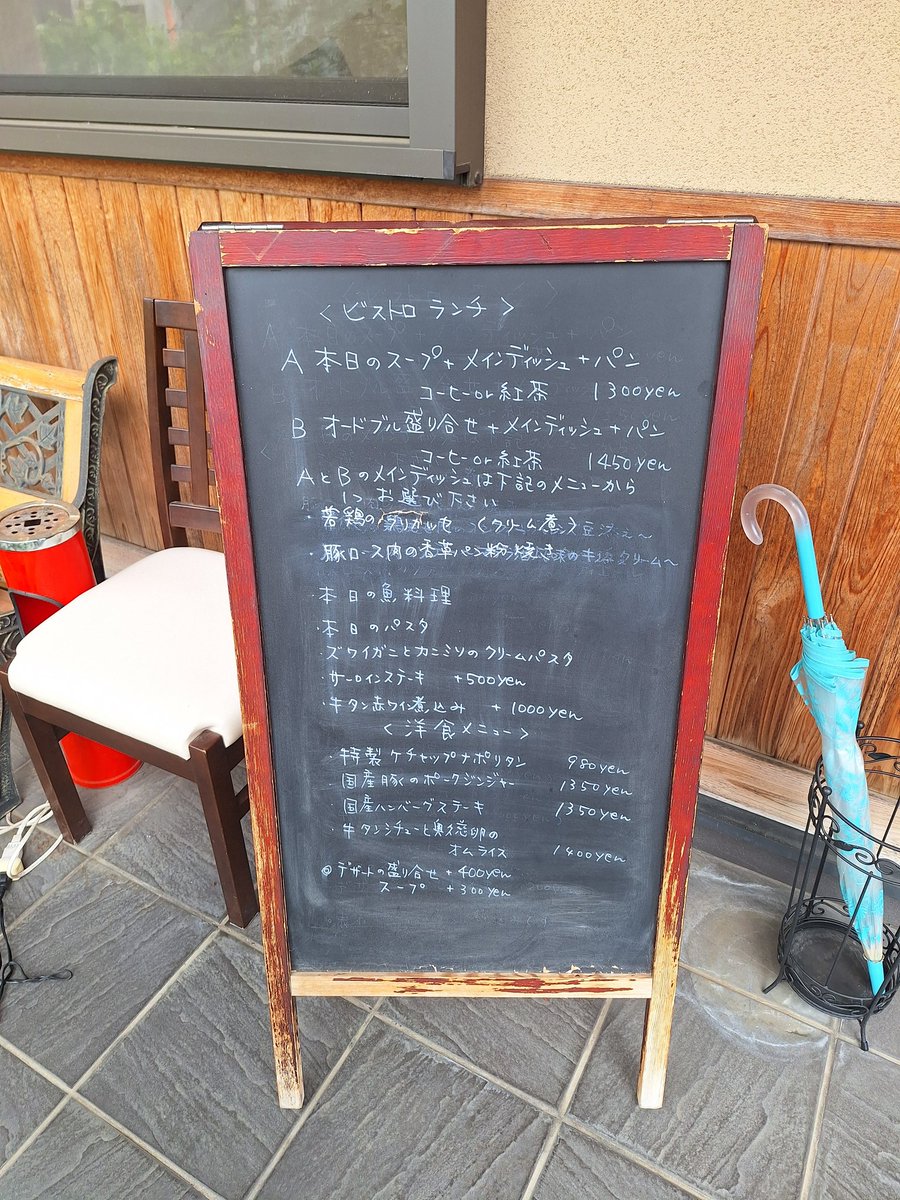 <ビストロ ランチ>
A 本日のスープ+メインディッシュ+パン
コーヒーor紅茶 1300yen
B オードブル盛り合せ+メインディッシュ+パン
コーヒーor紅茶 1450yen
AとBのメインディッシュは下記のメニューから
1つお選び下さい
・若鶏のフリカッセ 〈クリーム煮〉
・豚ロース肉の香草パン粉焼き
・本日の魚料理
・本日のパスタ
・ズワイガニとカニミソのクリームパスタ
・サーロインステーキ +500yen
・牛タン赤ワイン煮込み +1000yen
<洋食メニュー>
・特製ケチャップナポリタン 980yen
・国産豚のポークジンジャー 1350yen
・国産ハンバーグステーキ 1350yen
・牛タンシチューと奥久慈卵の
オムライス 1400yen
◎デザートの盛り合せ +400yen
スープ +300yen